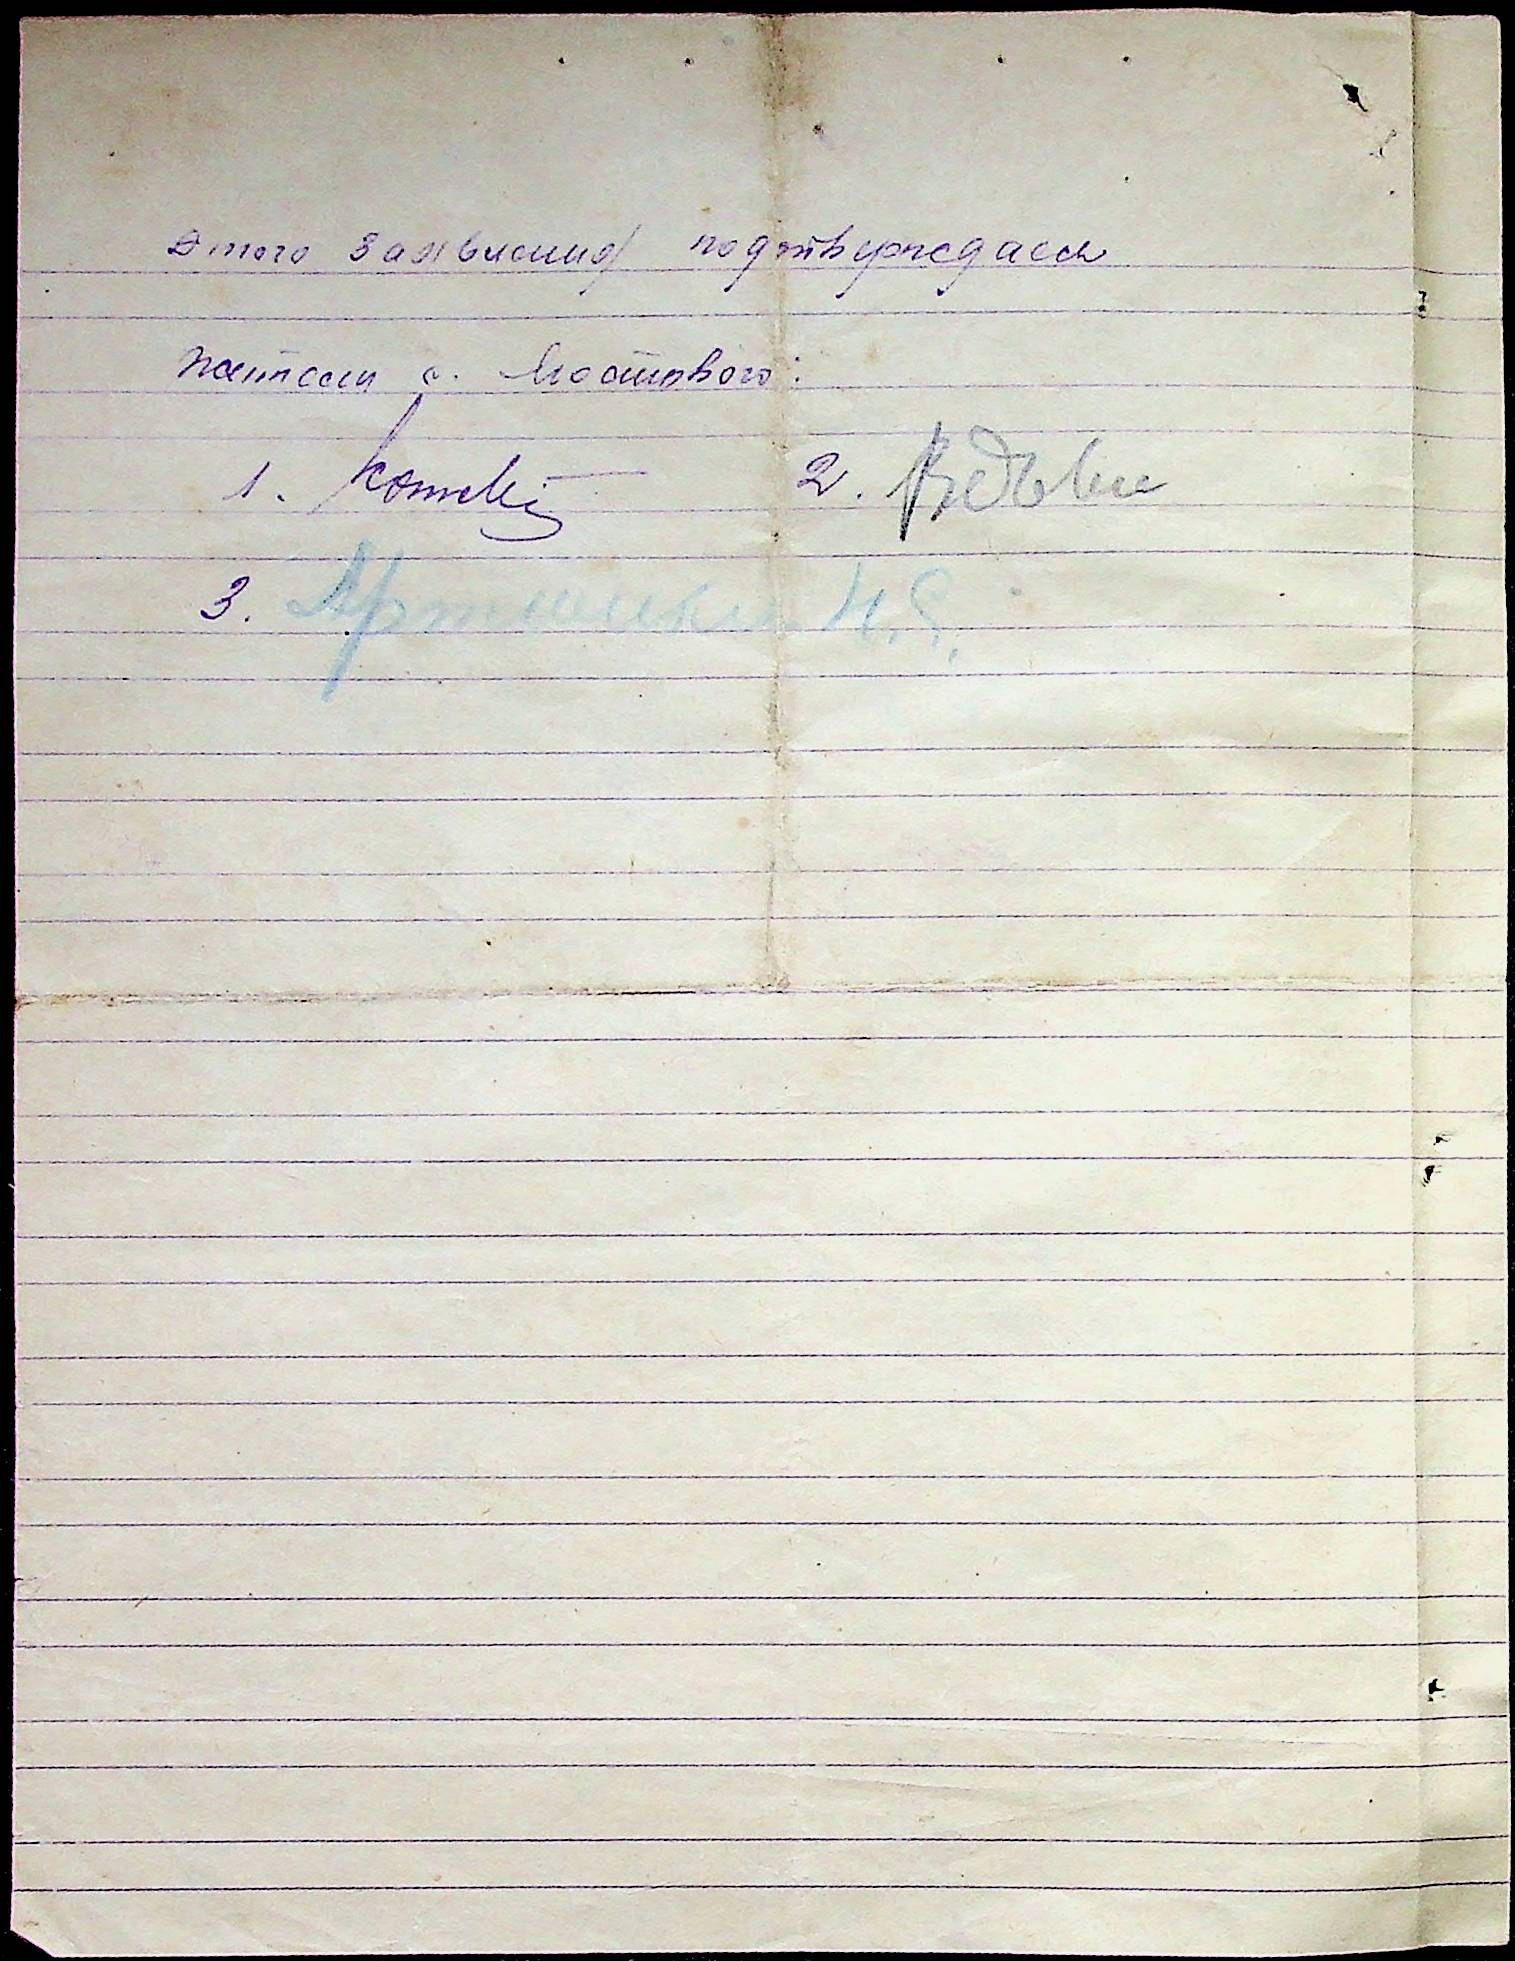 этого заявления подтверждаем
жители с. Мостового:
1. 2.
3. Артюшкин И.С.